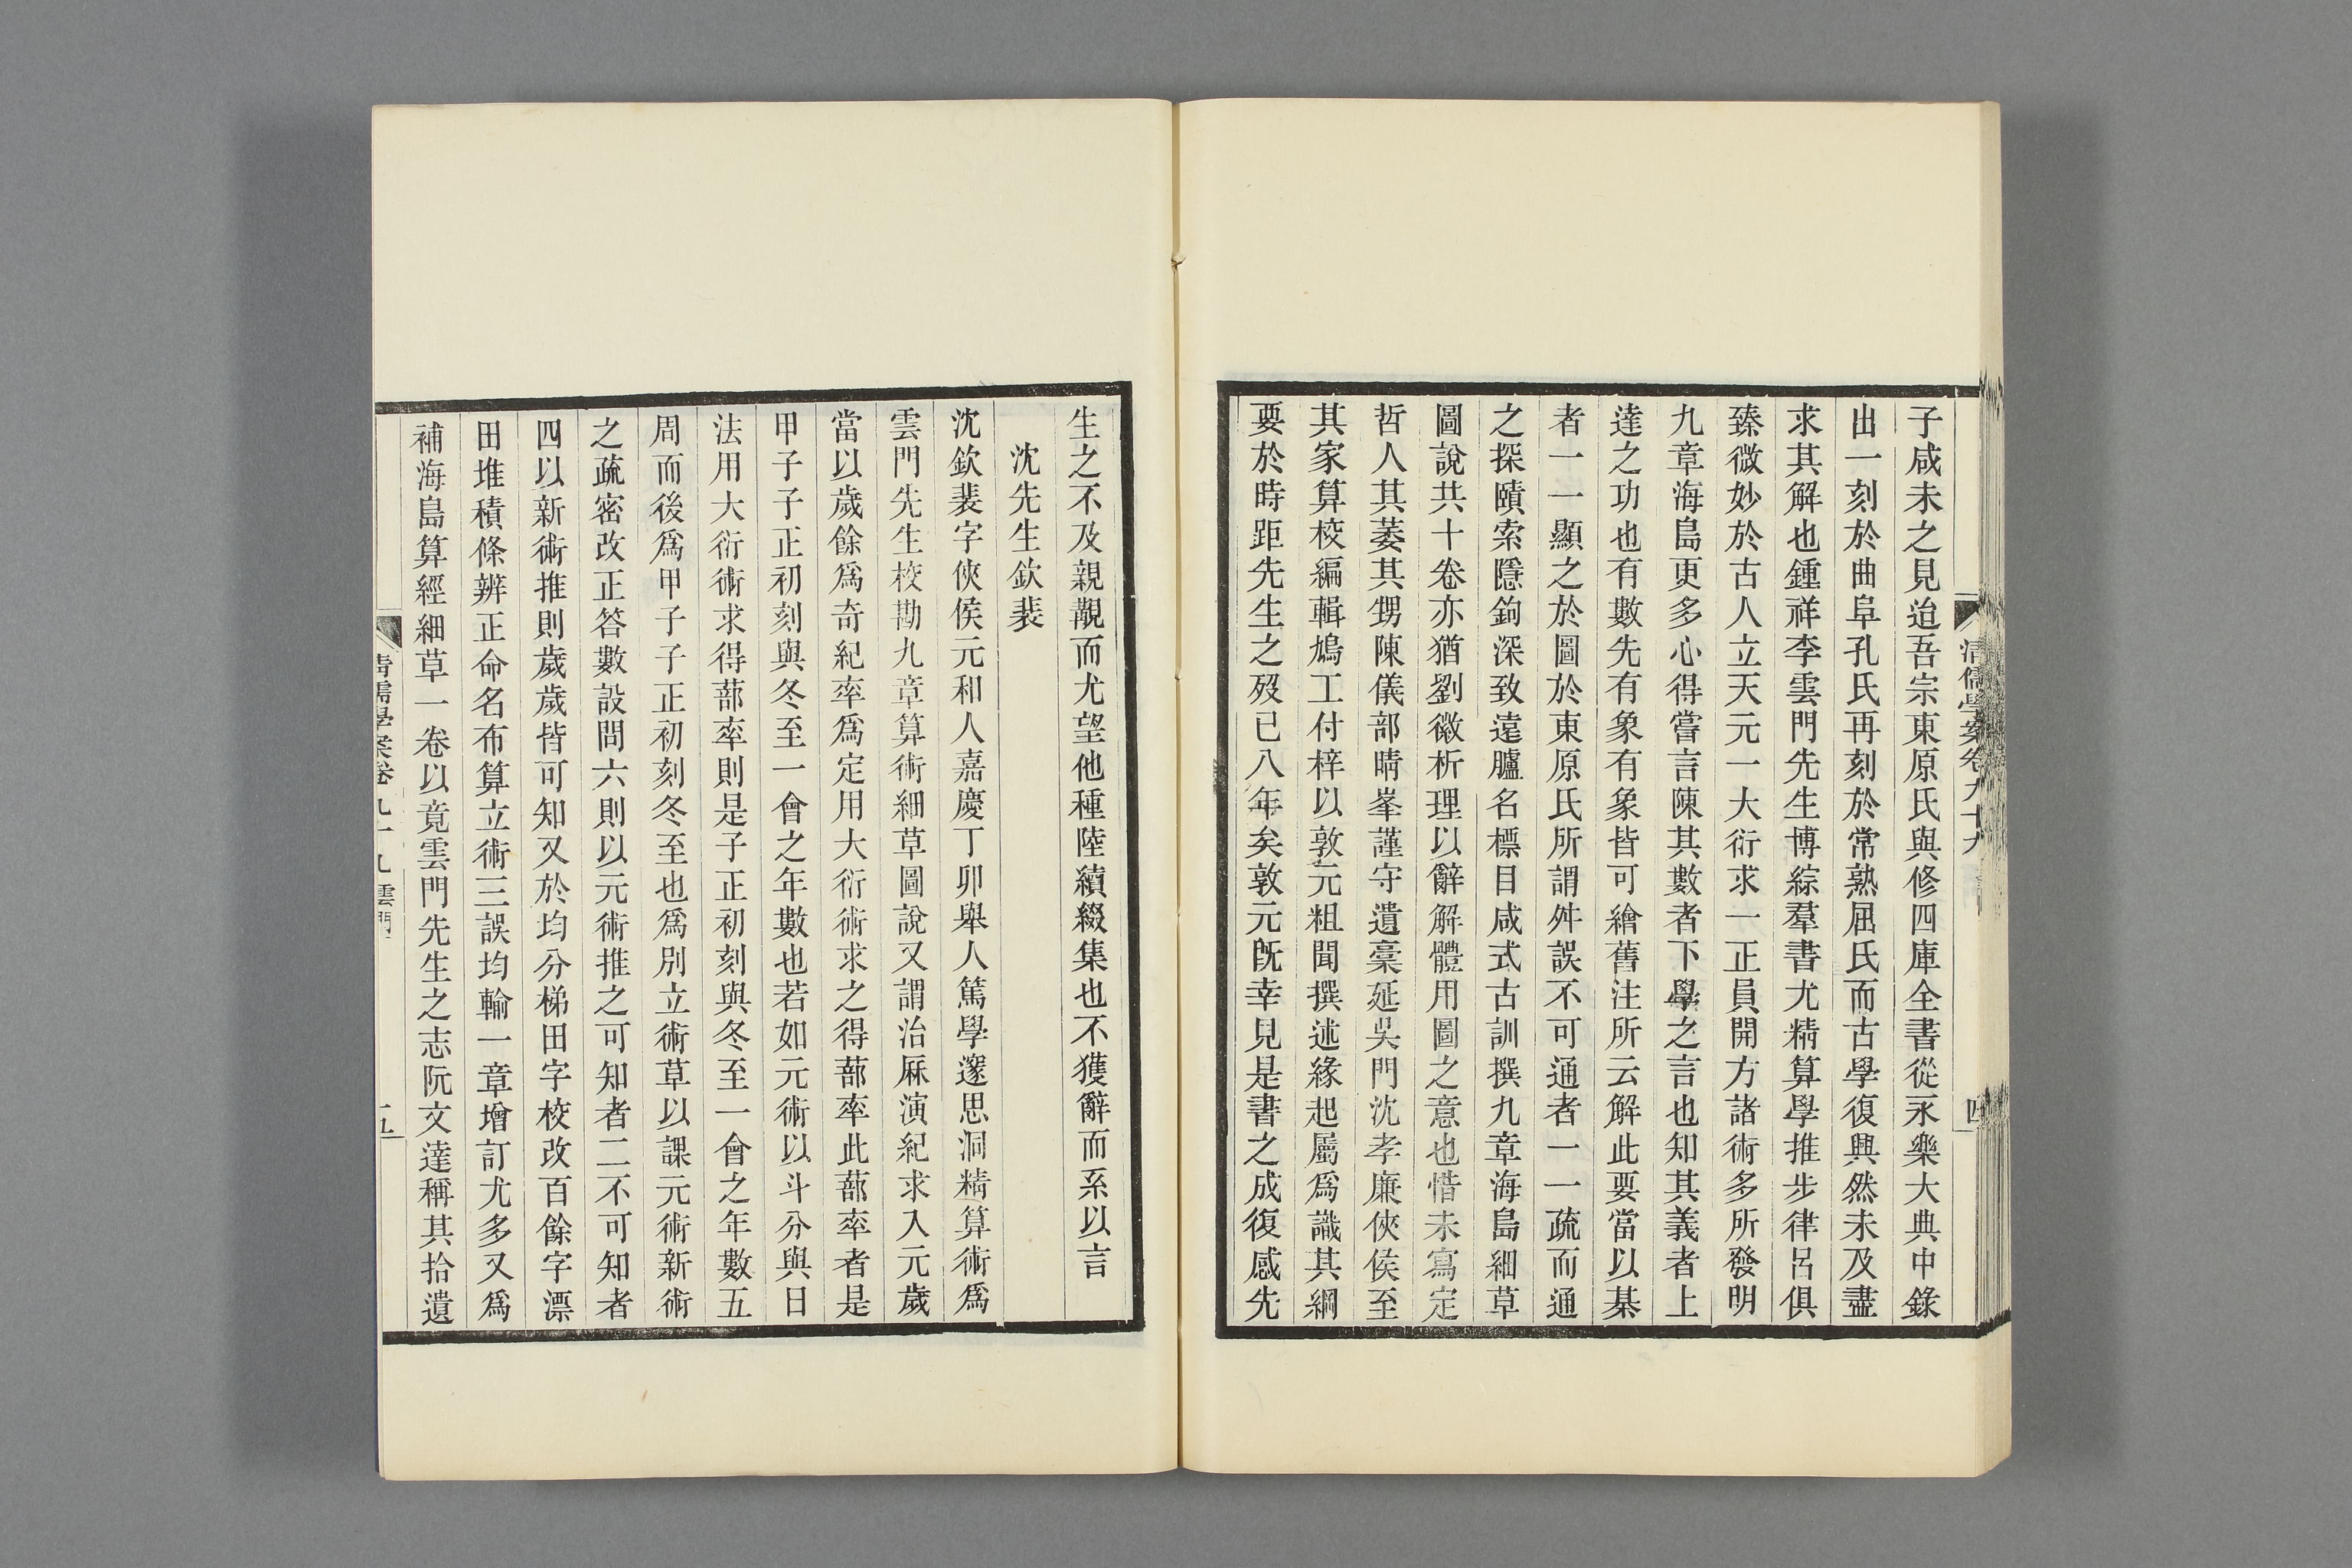 清儒學案卷九十九
四
子咸未之見迨吾宗東原氏與修四庫全書從永樂大典中錄
出一刻於曲阜孔氏再刻於常熟屈氏而古學復興然未及盡
求其解也鍾祥李雲門先生博綜羣書尤精算學推步律呂俱
臻微妙於古人立天元一大衍求一正員開方諸術多所發明
九章海島更多心得嘗言陳其數者下學之言也知其義者上
達之功也有數先有象有象皆可繪舊注所云解此要當以棊
者一一顯之於圖於東原氏所謂舛誤不可通者一一疏而通
之探賾索隱鉤深致遠臚名標目咸式古訓撰九章海島細草
圖說共十卷亦猶劉徽析理以辭解體用圖之意也惜未寫定
哲人其萎其甥陳儀部晴峯謹守遺稾延吳門沈孝廉俠侯至
其家算校編輯鳩工付梓以敦元粗聞撰述緣起屬爲識其綱
要於時距先生之歿已八年矣敦元旣幸見是書之成復感先
生之不及親覩而尤望他種陸續綴集也不獲辭而系以言
沈先生欽裴
沈欽裴字俠侯元和人嘉慶丁卯舉人篤學邃思洞精算術爲
雲門先生校勘九章算術細草圖說又謂治厤演紀求入元歲
當以歲餘爲奇紀率爲定用大衍術求之得蔀率此蔀率者是
甲子子正初刻與冬至一會之年數也若如元術以斗分與日
法用大衍術求得蔀率則是子正初刻與冬至一會之年數五
周而後爲甲子子正初刻冬至也爲別立術草以課元術新術
之疏密改正答數設問六則以元術推之可知者二不可知者
四以新術推則歲歲皆可知又於均分梯田字校改百餘字漂
田堆積條辨正命名布算立術三誤均輸一章增訂尤多又爲
補海島算經細草一卷以竟雲門先生之志阮文達稱其拾遺
清儒學案卷九十九 雲門
五